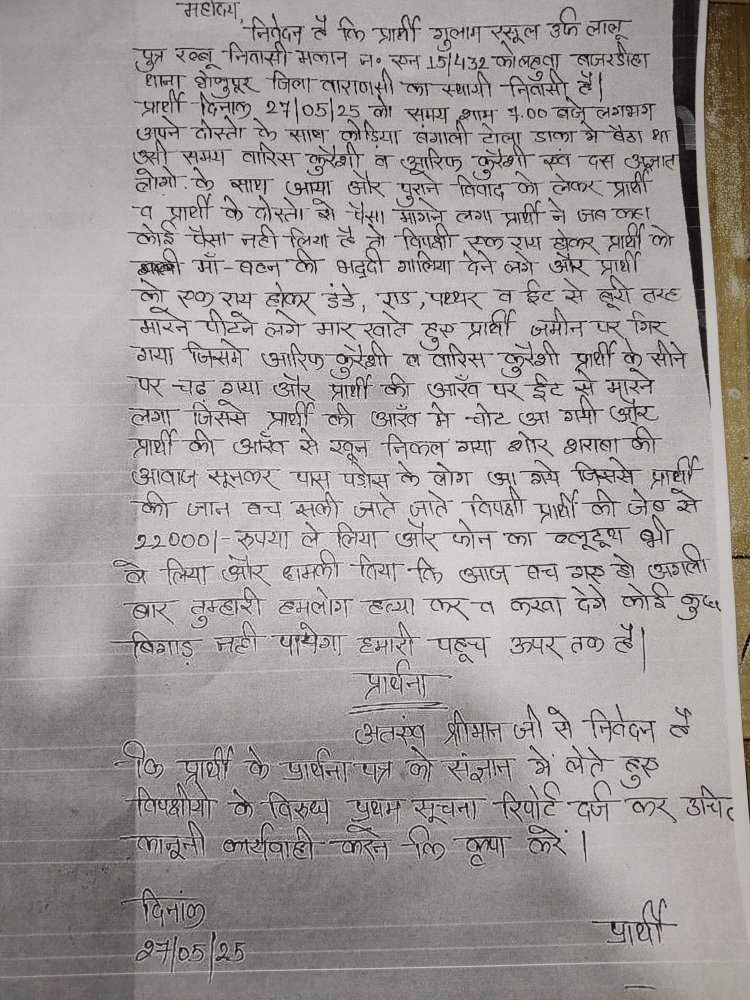 महोदय,
निवेदन है कि प्रार्थी गुलाम रसूल उर्फ लालू
पुत्र रब्बू निवासी मकान न० एन 15/432 कोलहुवा बजरडीहा
थाना भेलुपुर जिला वाराणसी का स्थायी निवासी है।
प्रार्थी दिनांक 27/05/25 को समय शाम 7.00 बजे लगभग
अपने दोस्तो के साथ कोडिया बंगाली टोला ढाका मे बैठा था
उसी समय वारिस कुरैशी व आरिफ कुरैशी एवं दस अज्ञात
लोगो के साथ आया और पुराने विवाद को लेकर प्रार्थी
व प्रार्थी के दोस्तो से पैसा मांगने लगा प्रार्थी ने जब कहा
कोई पैसा नही लिया है तो विपक्षी एक राय होकर प्रार्थी को
माँ-बहन की भद्दी गालिया देने लगे और प्रार्थी
को एक राय होकर डंडे, राड, पथ्थर व ईट से बूरी तरह
मारने पीटने लगे मार खाते हुए प्रार्थी जमीन पर गिर
गया जिसमे आरिफ कुरैशी व वारिस कुरैशी प्रार्थी के सीने
पर चढ गया और प्रार्थी की आँख पर ईट से मारने
लगा जिससे प्रार्थी की आँख मे चोट आ गयी और
प्रार्थी की आँख से खून निकल गया शोर शराबा की
आवाज सूनकर पास पडोस के लोग आ गये जिससे प्रार्थी
की जान बच सकी जाते जाते विपक्षी प्रार्थी की जेब से
22000/- रुपया ले लिया और फोन का ब्लूटूथ भी
ले लिया और धामकी दिया कि आज बच गए हो अगली
बार तुम्हारी हमलोग हत्या कर व करवा देगे कोई कुछ
बिगाड़ नही पायेगा हमारी पहूच ऊपर तक है।
प्रार्थना
अतएव श्रीमान जी से निवेदन है
कि प्रार्थी के प्रार्थना पत्र को संज्ञान में लेते हुए
विपक्षीयो के विरुध्ध प्रथम सूचना रिपोर्ट दर्ज कर उचित
कानूनी कार्यवाही करने कि कृपा करें।
दिनांक
27/05/25
प्रार्थी